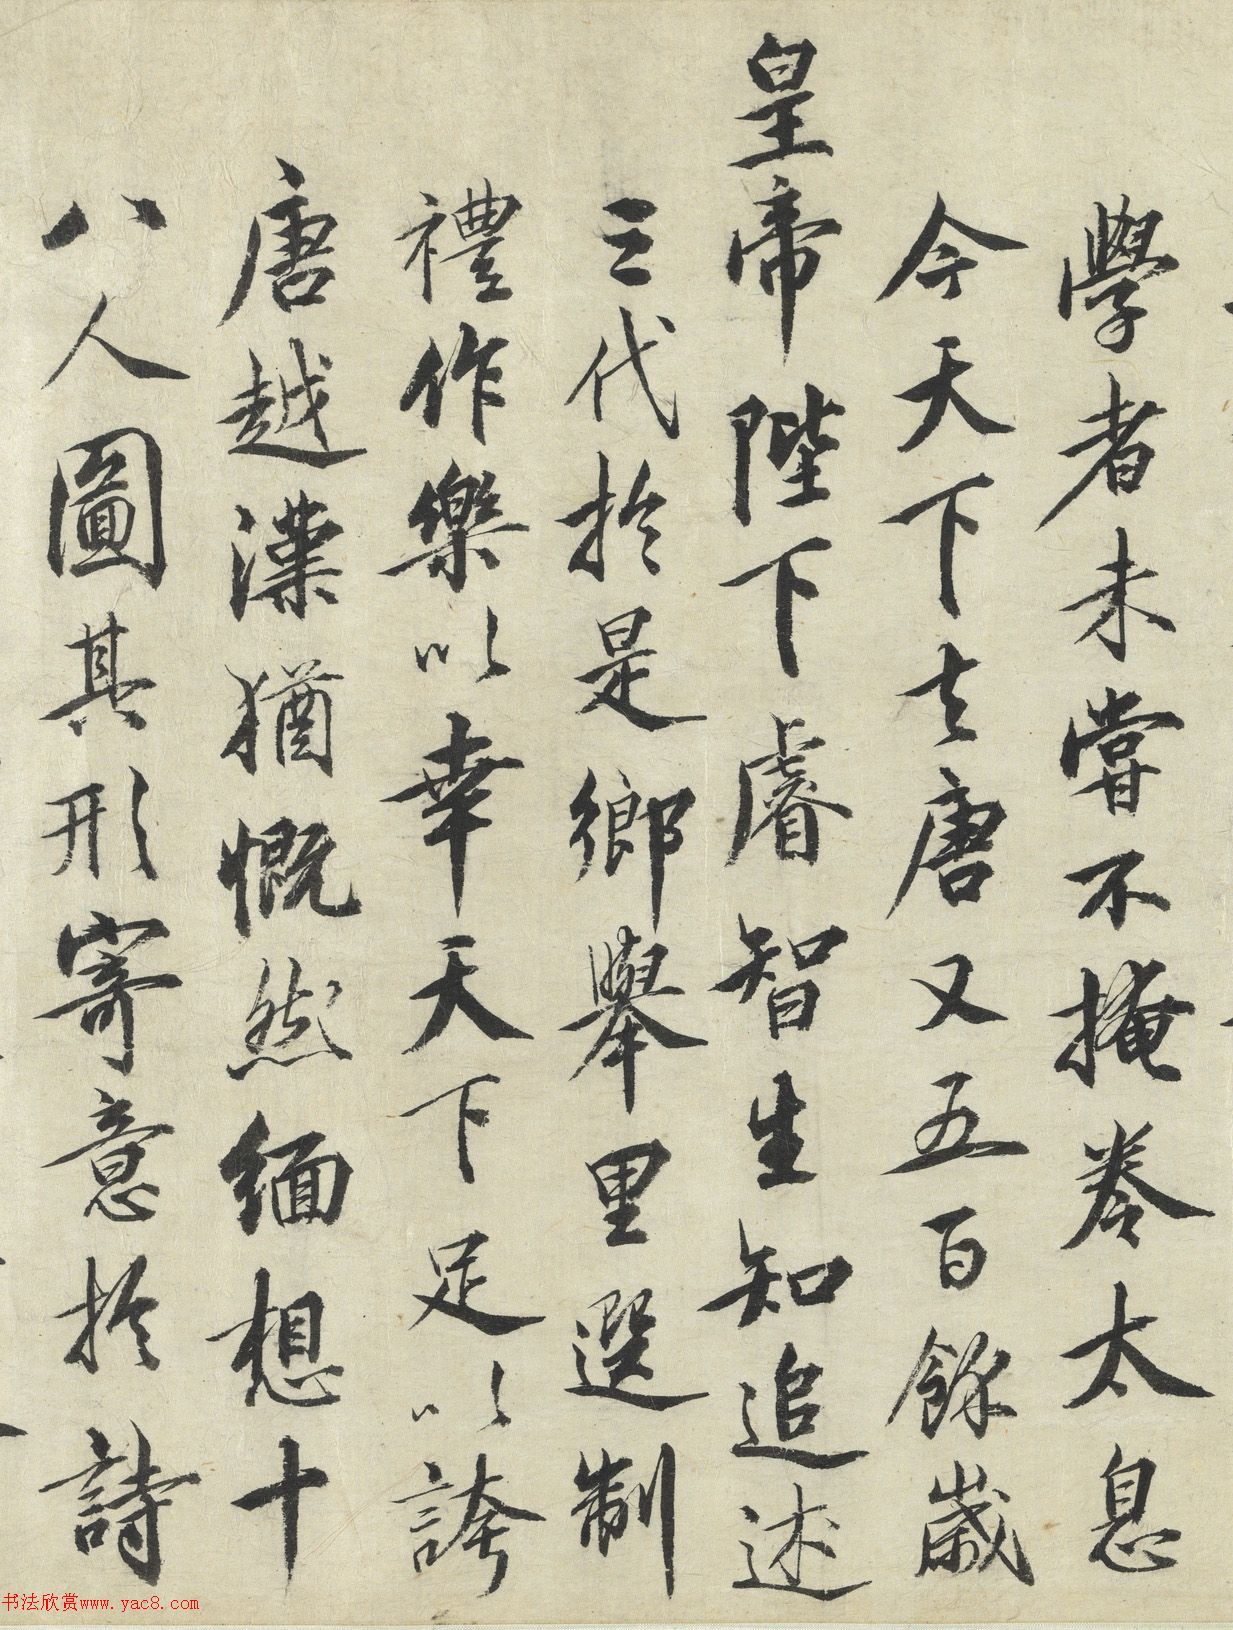 學者未嘗不掩卷太息
今天下去唐又五百餘歲
皇帝陛下睿智生知追述
三代於是鄉舉里選制
禮作樂以幸天下足以誇
唐越漢猶慨然緬想十
八人圖其形寄意於詩
书法欣赏www.yac8.com